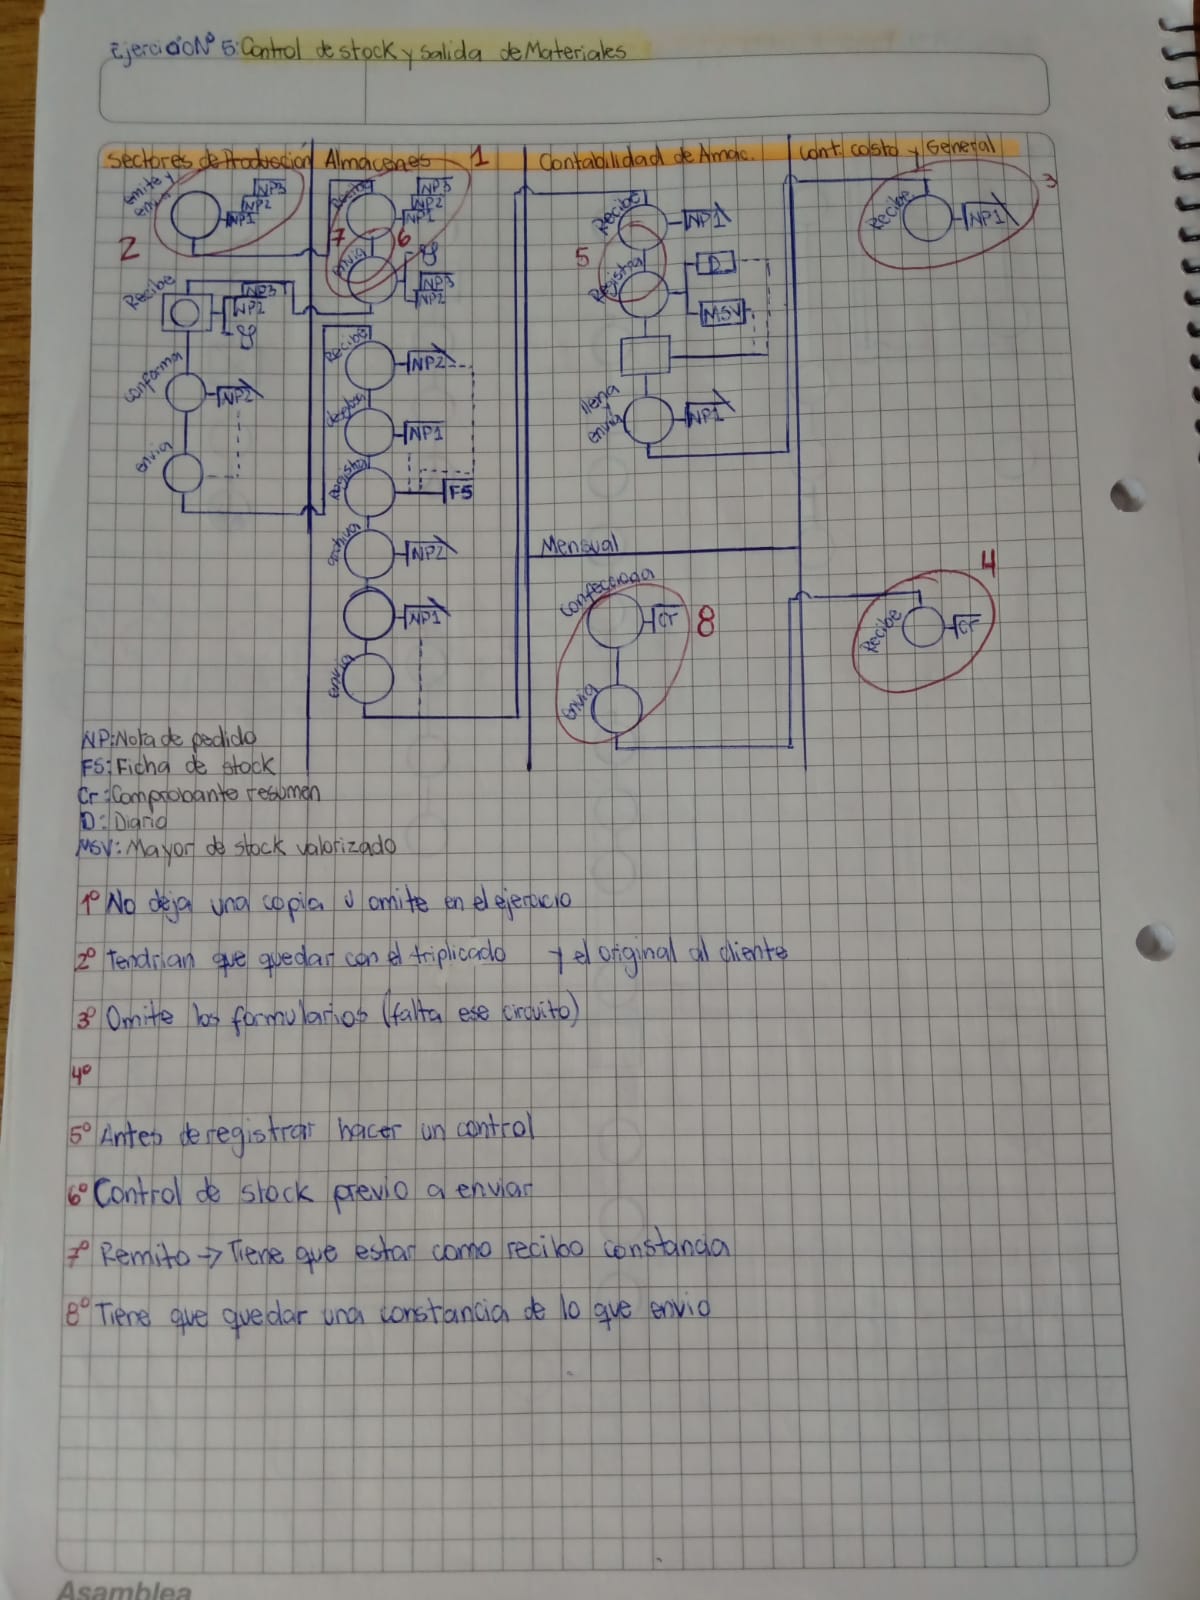 EjercicioNº 5: Control de stock y salida de Materiales
Sectores de Producción Almacenes 1 Contabilidad de Amac. Cont. costo y General
emite y
envia
NP3
NP2
NP1
2
Recibe
NP3
NP2
NP1
7
6
envia
NP3
NP2
Recibe
NP3
NP2
conforma
NP2
envia
Recibe
NP2
NP1
Registra
FS
archiva
NP2
NP1
envia
Recibe
NP1
5
Registra
D
MSV
llena
envia
NP1
Recibe
NP1
3
Mensual
Confecciona
Cr
8
envia
4
Recibe
Cr
NP: Nota de pedido
FS: Ficha de stock
Cr: Comprobante resumen
D: Diario
MSV: Mayor de stock valorizado
1º No deja una copia u omite en el ejercicio
2º Tendrian que quedar con el triplicado y el original al cliente
3º Omite los formularios (falta ese circuito)
4º
5º Antes de registrar hacer un control
6º Control de stock previo a enviar
7º Remito → Tiene que estar como recibo constancia
8º Tiene que quedar una constancia de lo que envio
Asamblea